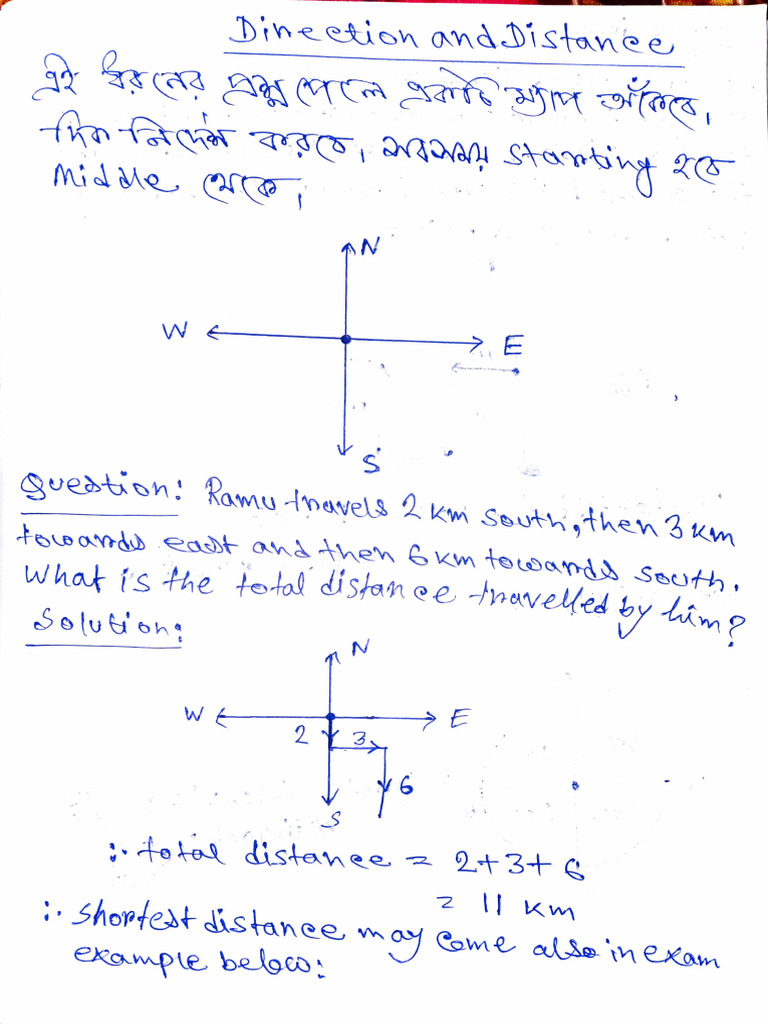 Direction and Distance
এই ধরনের প্রশ্ন পেলে একটি ম্যাপ আঁকবে,
দিক নির্দেশ করবে, সবসময় starting হবে
Middle থেকে,
N
W
E
S
Question: Ramu travels 2 km south, then 3 km
towards east and then 6 km towards south.
What is the total distance travelled by him?
Solution:
N
W
E
2 3
6
S
∴ total distance = 2+3+6
= 11 km
∴ shortest distance may come also in exam
example below: